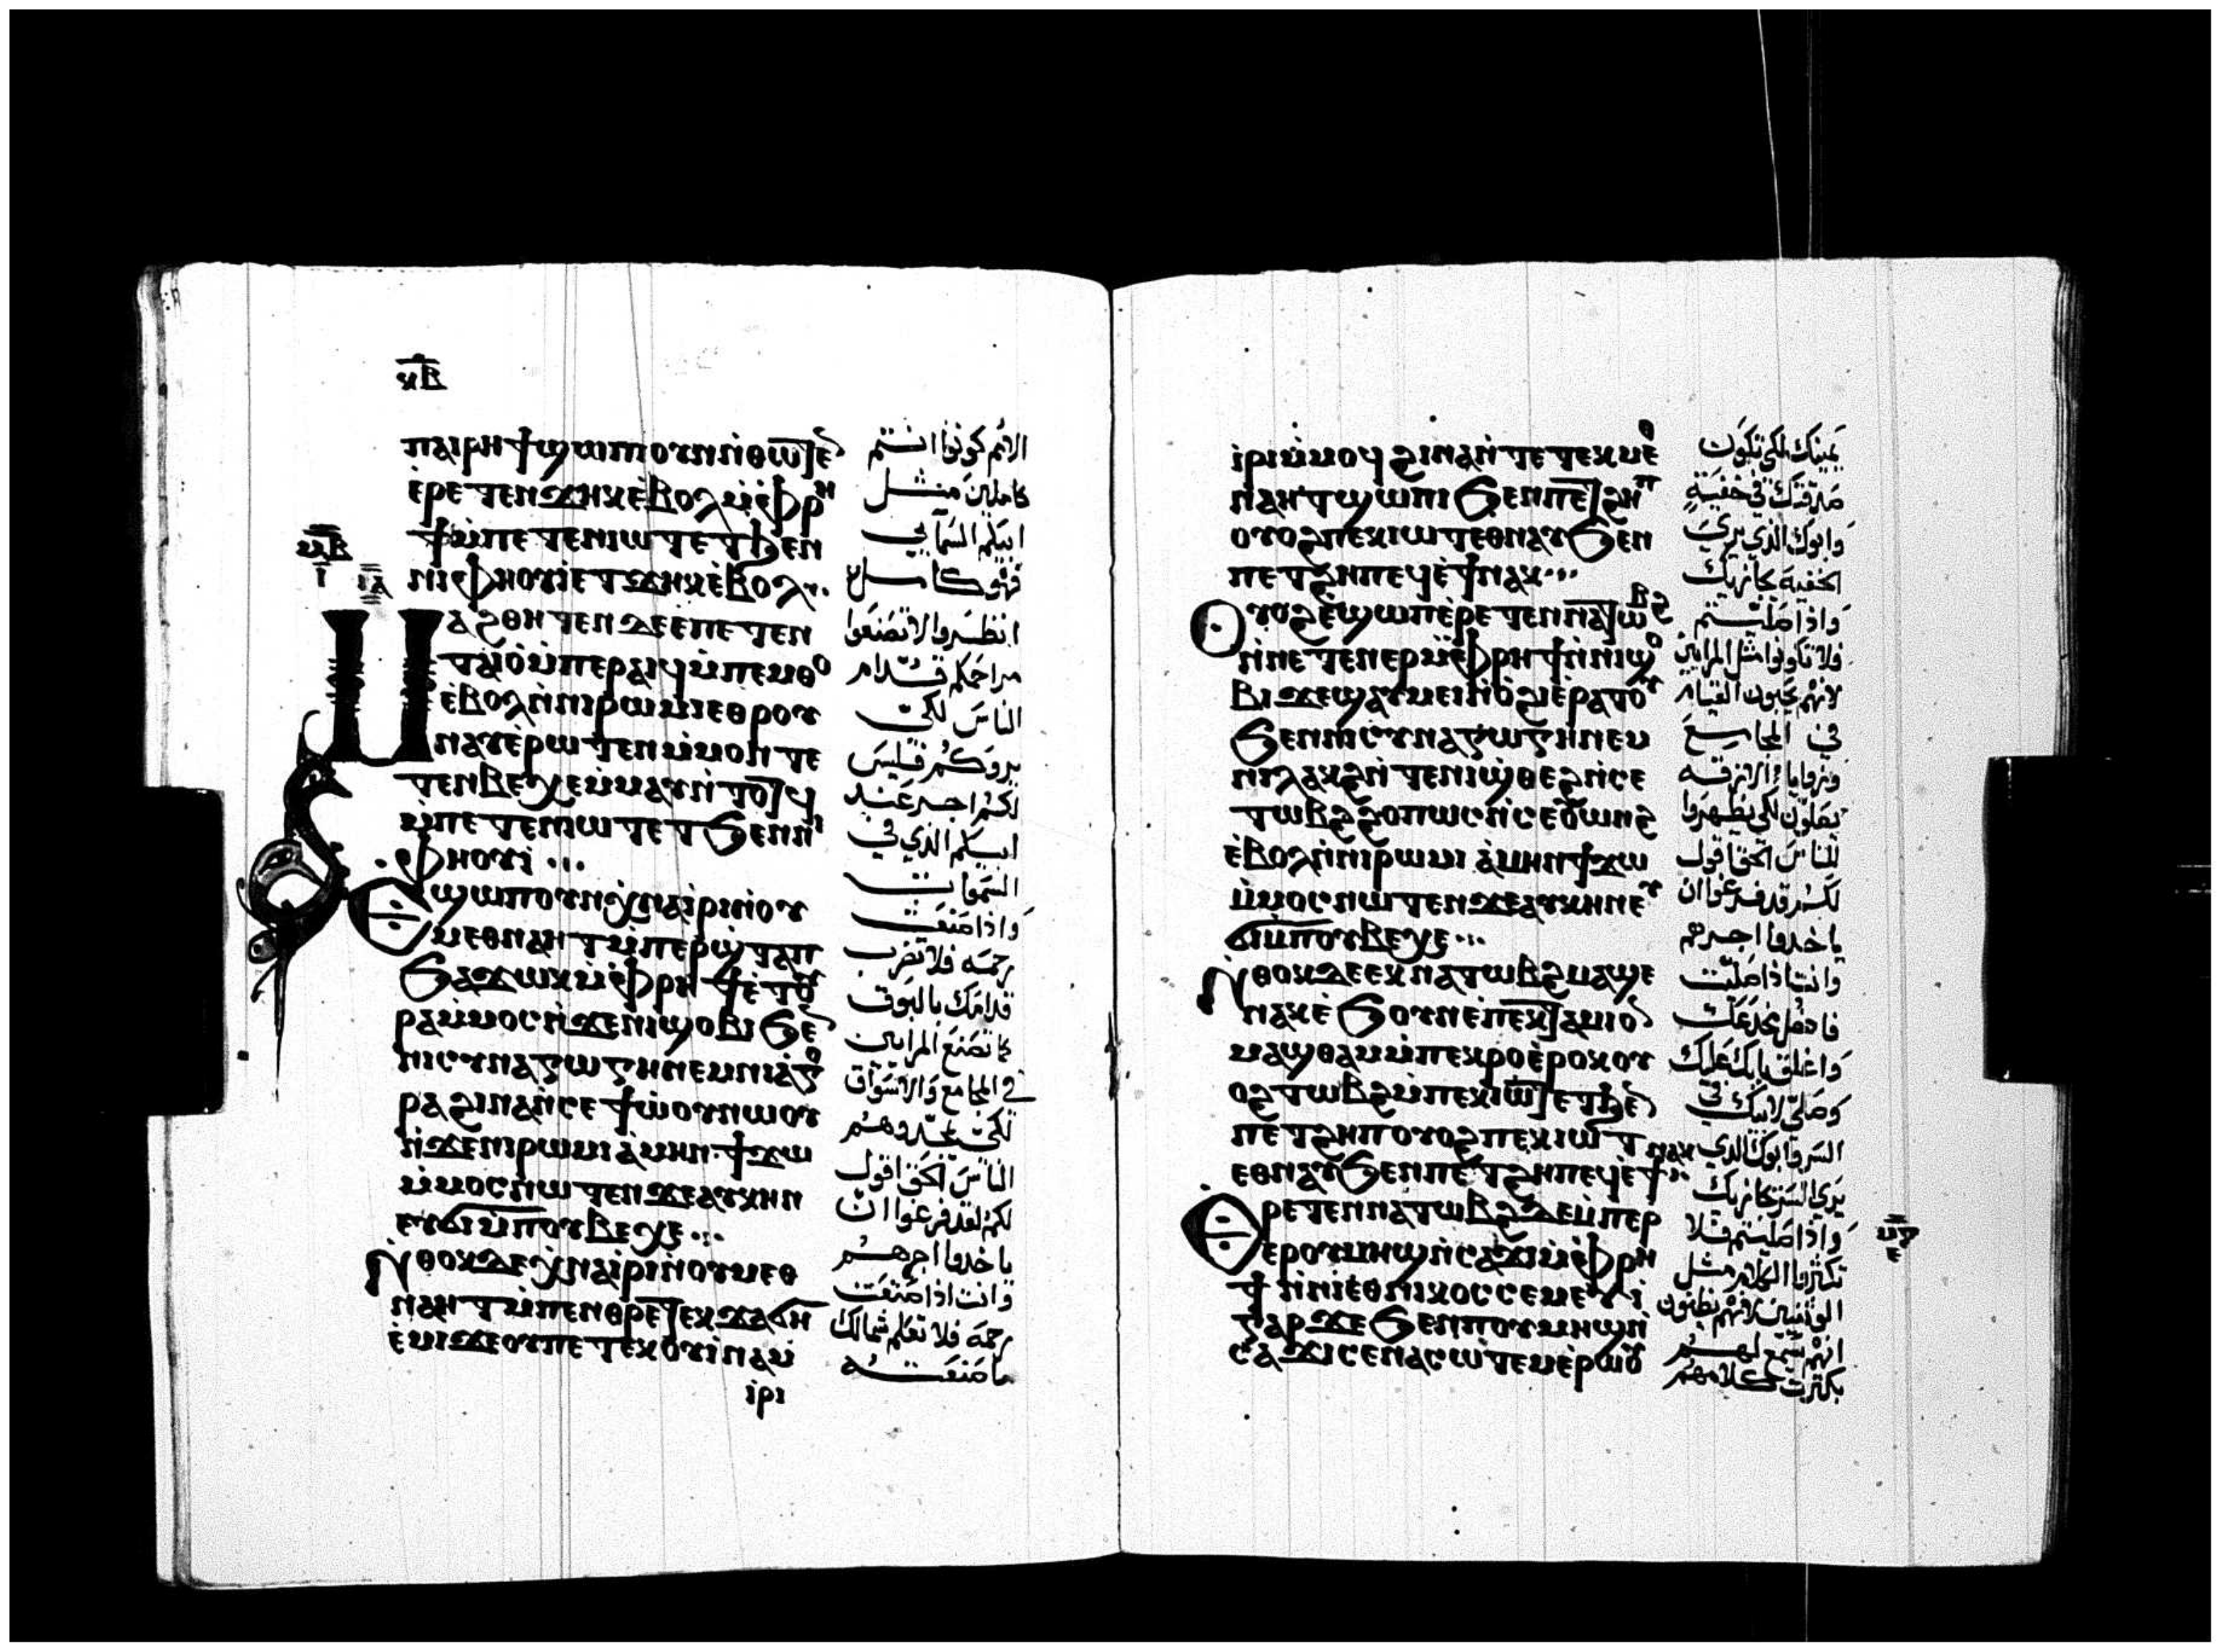 ⲕⲃ
ⲡⲁⲓⲣⲏϯ ϣⲱⲡⲓ ⲟⲩⲛ ⲛ̀ⲑⲱⲧⲉⲛ
ⲉ̀ⲣⲉⲧⲉⲛϫⲏⲕ ⲉ̀ⲃⲟⲗ ⲙ̀ⲫⲣⲏ
ϯ ⲙ̀ⲡⲉⲧⲉⲛⲓⲱⲧ ⲉⲧϧⲉⲛ
ⲛⲓⲫⲏⲟⲩⲓ̀ ⲉⲧϫⲏⲕ ⲉ̀ⲃⲟⲗ
ⲙⲁϩⲑⲏⲧⲉⲛ ⲇⲉ ⲉ̀ⲡⲉⲧⲉⲛ
ⲧⲁⲓⲟ̀ ⲙ̀ⲡⲉⲣⲁⲓϥ ⲙ̀ⲡⲉⲙⲑⲟ
ⲉ̀ⲃⲟⲗ ⲛ̀ⲛⲓⲣⲱⲙⲓ ⲉⲑⲣⲟⲩ
ⲛⲁⲩ ⲉ̀ⲣⲱⲧⲉⲛ ⲙ̀ⲙⲟⲛ ⲧⲉ
ⲧⲉⲛⲃⲉⲭⲉ ⲙ̀ⲙⲁⲩ ⲛ̀ⲧⲟⲧϥ
ⲙ̀ⲡⲉⲧⲉⲛⲓⲱⲧ ⲉⲧϧⲉⲛ ⲛⲓ
ⲫⲏⲟⲩⲓ̀
ⲉϣⲱⲡ ⲟⲩⲛ ⲭⲛⲁⲓⲣⲓ ⲛ̀ⲟⲩ
ⲙⲉⲑⲛⲁⲏⲧ ⲙ̀ⲡⲉⲣⲱ̀ϣ ⲧⲁⲡ
ϧⲁϫⲱⲕ ⲙ̀ⲫⲣⲏϯ ⲉ̀ⲧⲟⲩ
ⲣⲁ ⲙ̀ⲙⲟⲥ ⲛ̀ϫⲉ ⲛⲓϣⲟⲃⲓ ϧⲉⲛ
ⲛⲓⲥⲩⲛⲁⲅⲱⲅⲏ ⲛⲉⲙ ⲛⲓⲁ̀ⲅⲟ
ⲣⲁ ϩⲓⲛⲁ ⲛ̀ⲥⲉϯⲱ̀ⲟⲩ ⲛⲱⲟⲩ
ⲛ̀ϫⲉ ⲛⲓⲣⲱⲙⲓ ⲁ̀ⲙⲏⲛ ϯϫⲱ
ⲙ̀ⲙⲟⲥ ⲛⲱⲧⲉⲛ ϫⲉ ⲁⲩⲕⲏⲛ
ⲉⲩϭⲓ ⲙ̀ⲡⲟⲩⲃⲉⲭⲉ
ⲛ̀ⲑⲟⲕ ⲇⲉ ⲭⲛⲁⲓⲣⲓ ⲛ̀ⲟⲩⲙⲉⲑ
ⲛⲁⲏⲧ ⲙ̀ⲡⲉⲛⲑⲣⲉ ⲧⲉⲕϫⲁϭⲏ
ⲉ̀ⲙⲓ ϫⲉ ⲟⲩ ⲡⲉ ⲧⲉⲕⲟⲩⲓ̀ⲛⲁⲙ
ⲓⲣⲓ
ⲙⲃ
ⲓ
ⲓⲁ
كونوا انتم
كاملين مثل
ابيكم السمآيي
فهو كامل
انظروا لا تصنعوا
مراحمكم قدام
الناس لكي
يروكم فليس
لكم اجر عند
ابيكم الذي في
السموات
واذا صنعت
رحمه فلا تضرب
قدامك بالبوق
كما تصنع المرايين
في المجامع والاسواق
لكي يمجدوهم
الناس الحق اقول
لكم لقد فرغوا ان
ياخدوا اجرهم
وانت اذا صنعت
رحمه فلا تعلم شمالك
ما صنعته
ⲓⲣⲓ ⲙ̀ⲙⲟϥ ϩⲓⲛⲁ ⲛ̀ⲧⲉ ⲧⲉⲕⲙⲉⲑ
ⲛⲁⲏⲧ ϣⲱⲡⲓ ϧⲉⲛ ⲡⲉⲧϩⲏⲡ
ⲟⲩⲟϩ ⲡⲉⲕⲓⲱⲧ ⲉⲑⲛⲁⲩ ϧⲉⲛ
ⲡⲉⲧϩⲏⲡ ⲉϥⲉ̀ϯ ⲛⲁⲕ
ⲟⲩⲟϩ ⲉ̀ϣⲱⲡ ⲉ̀ⲣⲉⲧⲉⲛⲛⲁⲧⲱⲃϩ
ⲛ̀ⲛⲉⲧⲉⲛⲉⲣ ⲙ̀ⲫⲣⲏϯ ⲛ̀ⲛⲓϣⲟ
ⲃⲓ ϫⲉ ϣⲁⲩⲙⲉⲓ ⲛ̀ⲟ̀ϩⲓ ⲉ̀ⲣⲁⲧⲟⲩ
ϧⲉⲛ ⲛⲓⲥⲩⲛⲁⲅⲱⲅⲏ ⲛⲉⲙ
ⲛⲓⲗⲁⲕϩ ⲛ̀ⲧⲉ ⲛⲓϣ̀ⲑⲉϩ ⲛ̀ⲥⲉ
ⲧⲱⲃϩ ϩⲟⲡⲱⲥ ⲛ̀ⲥⲉⲟⲩⲱⲛϩ
ⲉ̀ⲃⲟⲗ ⲛ̀ⲛⲓⲣⲱⲙⲓ ⲁ̀ⲙⲏⲛ ϯϫⲱ
ⲙ̀ⲙⲟⲥ ⲛⲱⲧⲉⲛ ϫⲉ ⲁⲩⲕⲏⲛ ⲉⲩ
ϭⲓ ⲙ̀ⲡⲟⲩⲃⲉⲭⲉ
ⲛ̀ⲑⲟⲕ ⲇⲉ ⲉⲕⲛⲁⲧⲱⲃϩ ⲙⲁϣⲉ
ⲛⲁⲕ ⲉ̀ϧⲟⲩⲛ ⲉ̀ⲡⲉⲕⲧⲁⲙⲓⲟⲛ
ⲙⲁϣⲑⲁⲙ ⲙ̀ⲡⲉⲕⲣⲟ ⲉ̀ⲣⲟⲕ ⲟⲩ
ⲟϩ ⲧⲱⲃϩ ⲙ̀ⲡⲉⲕⲓⲱⲧ ⲉⲧϧⲉⲛ
ⲡⲉⲧϩⲏⲡ ⲟⲩⲟϩ ⲡⲉⲕⲓⲱⲧ
ⲉⲑⲛⲁⲩ ϧⲉⲛ ⲡⲉⲧϩⲏⲡ ⲉϥⲉ̀ϯ ⲛⲁⲕ
ⲉⲣⲉⲧⲉⲛⲛⲁⲧⲱⲃϩ ⲇⲉ ⲙ̀ⲡⲉⲣ
ⲉⲣ ⲟⲩⲙⲏϣ ⲛ̀ⲥⲁϫⲓ ⲙ̀ⲫⲣⲏ
ϯ ⲛ̀ⲛⲓⲉⲑⲛⲓⲕⲟⲥ ⲥⲉⲙⲉⲩⲓ̀
ⲅⲁⲣ ϫⲉ ϧⲉⲛ ⲡⲟⲩⲙⲏϣ ⲛ̀
ⲥⲁϫⲓ ⲥⲉⲛⲁⲥⲱⲧⲉⲙ ⲉ̀ⲣⲱⲟⲩ
يمينك لكي تكون
صدقتك في خفية
وابوك الذي يري
الخفيه يجازيك
واذا صليتم
فلا تكونوا مثل المرايين
لانهم يحبون القيام
في المجامع
وزوايا الازقه
يصلون لكي يظهروا
للناس الحق اقول
لكم قد فرغوا ان
ياخدوا اجرهم
وانت اذا صليت
فادخل مخدعك
واغلق بابك عليك
وصلي لابيك في
السر وابوك الذي
يري السر يجازيك
واذا صليتم فلا
تكثروا الكلام مثل
الوثنيين لانهم يظنون
انهم يسمع لهم
بكثرت كلامهم
ⲙⲅ
ⲉ